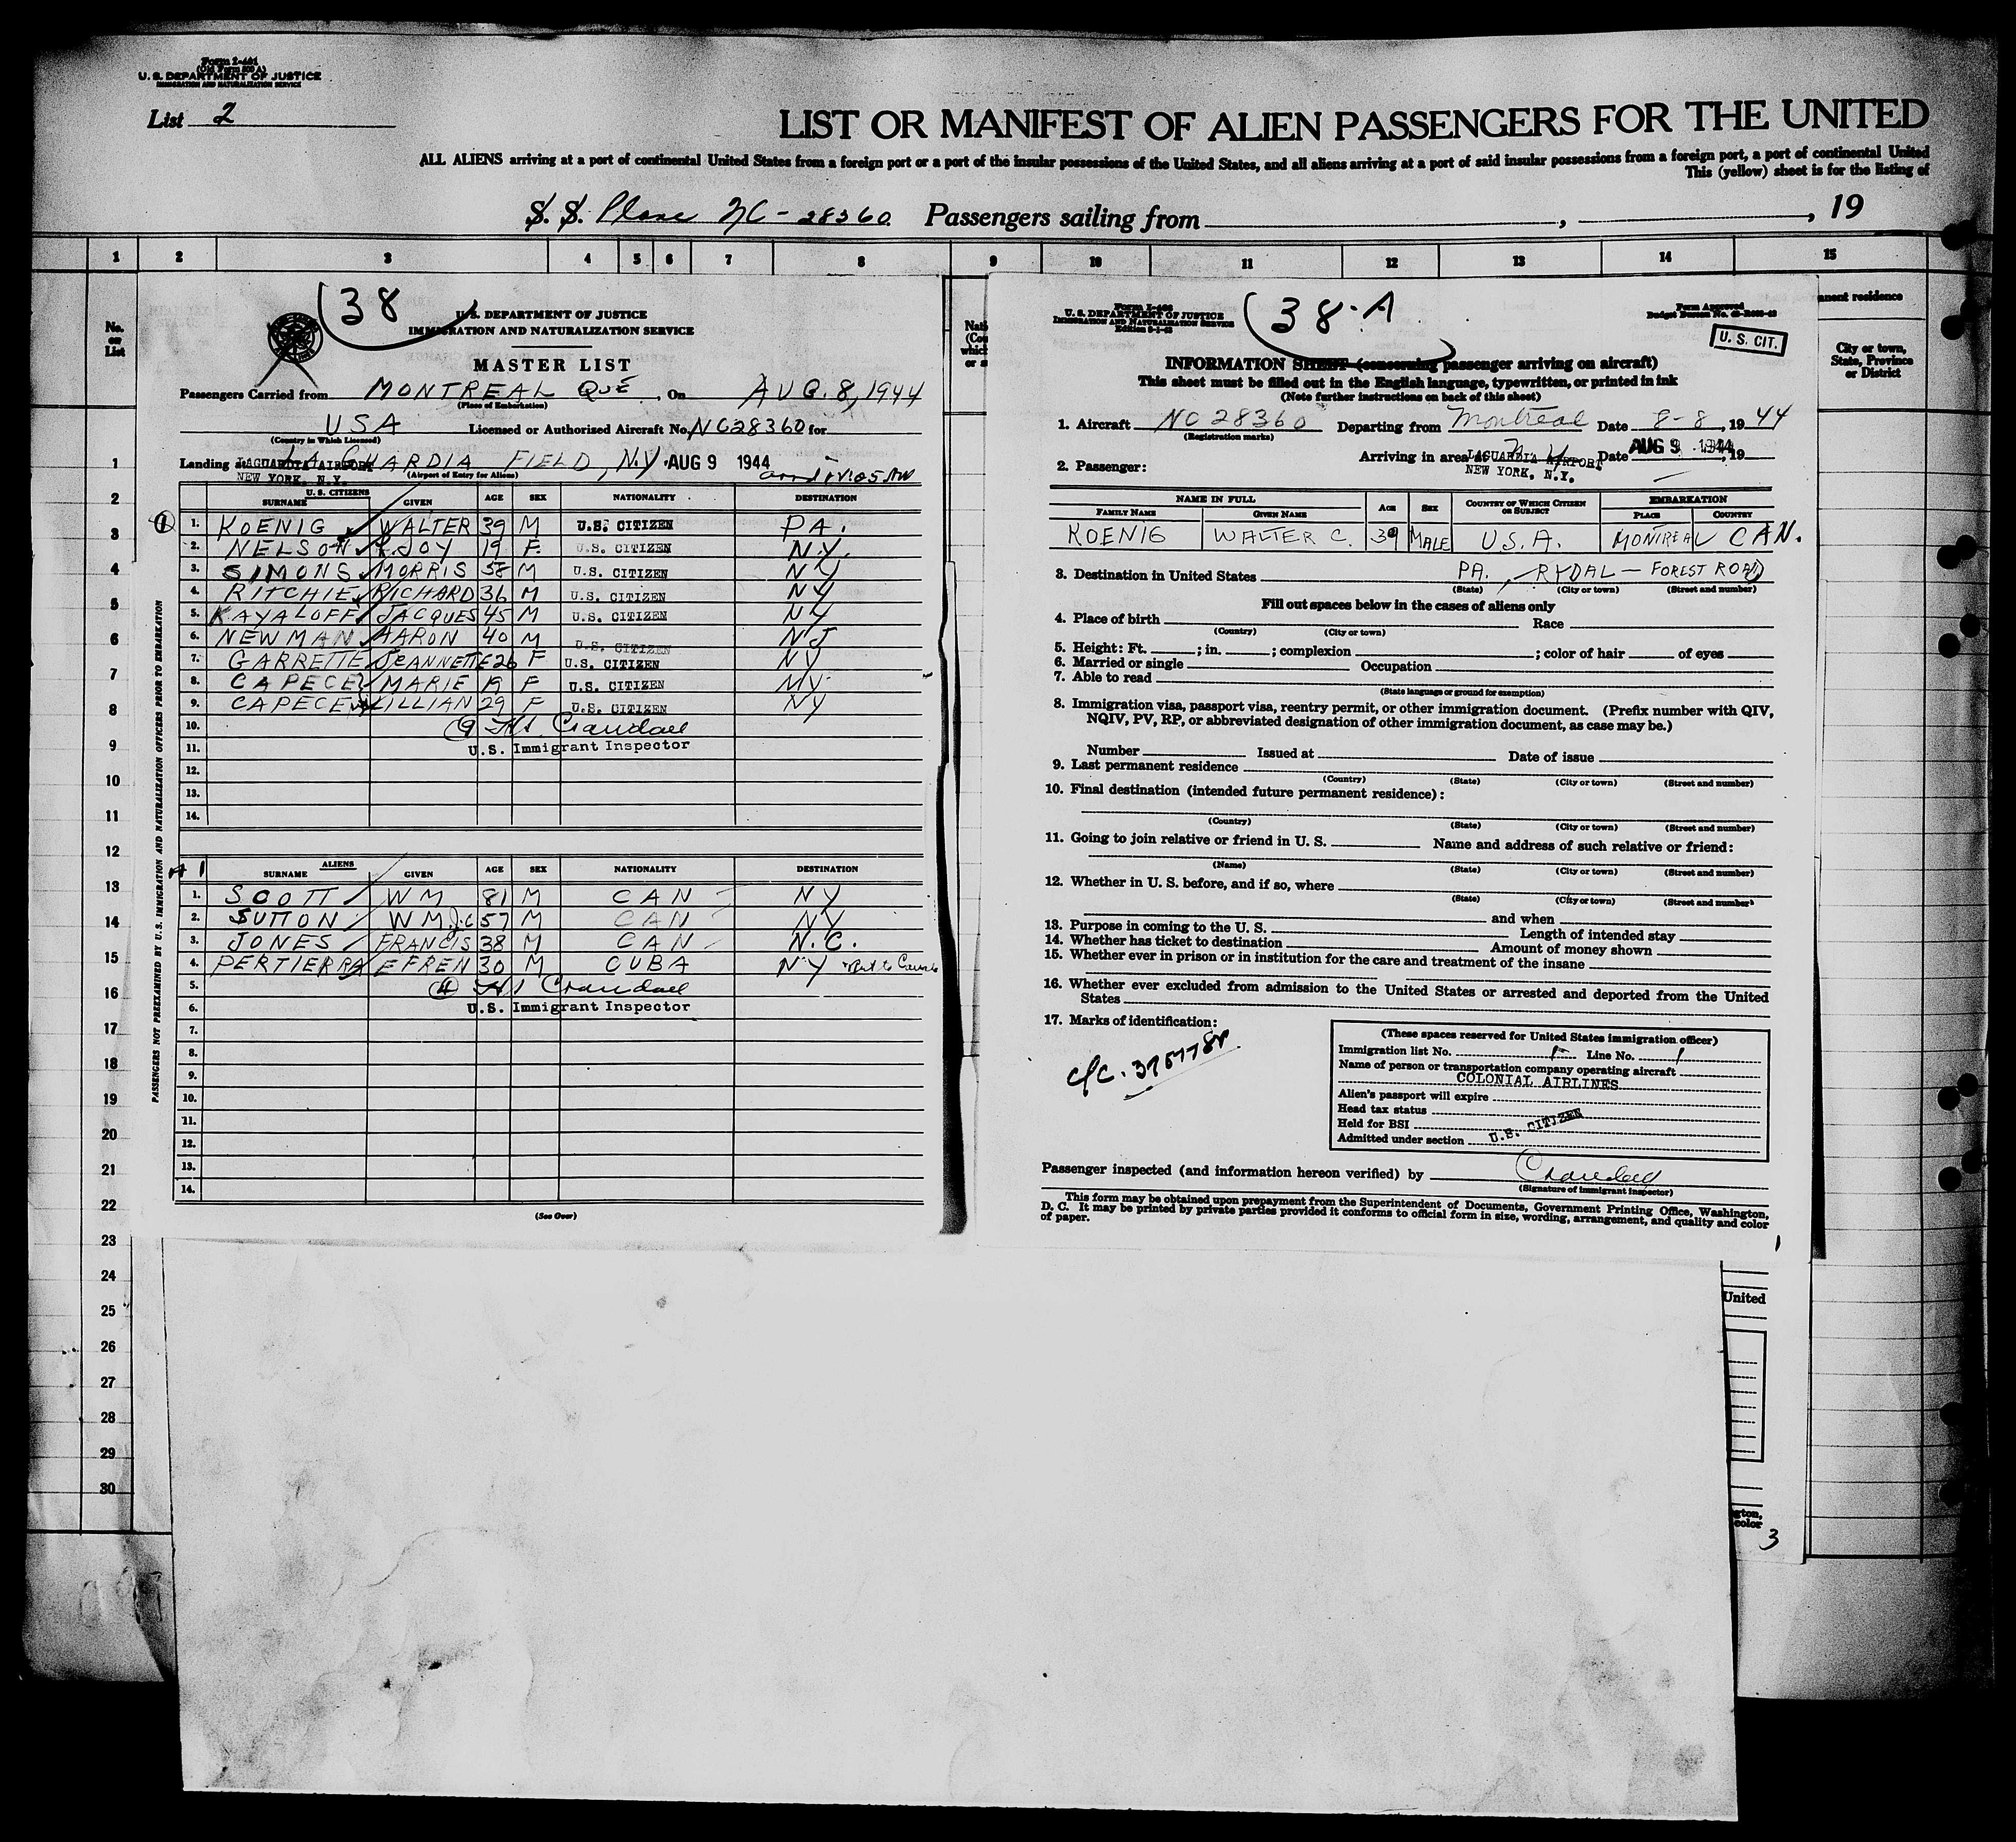 Form I-461
(Old Form 500 A)
U. S. DEPARTMENT OF JUSTICE
IMMIGRATION AND NATURALIZATION SERVICE
List 2
LIST OR MANIFEST OF ALIEN PASSENGERS FOR THE UNITED
ALL ALIENS arriving at a port of continental United States from a foreign port or a port of the insular possessions of the United States, and all aliens arriving at a port of said insular possessions from a foreign port, a port of continental United
This (yellow) sheet is for the listing of
S. S. Plane NC-28360 Passengers sailing from , , 19
1 2 3 4 5 6 7 8 9 10 11 12 13 14 15
No. on List
38
U.S. DEPARTMENT OF JUSTICE
IMMIGRATION AND NATURALIZATION SERVICE
MASTER LIST
Passengers Carried from MONTREAL QUÉ, On AUG. 8, 1944
(Place of Embarkation)
USA Licensed or Authorised Aircraft No. NC28360 for
(Country in Which Licensed)
Landing at LA GUARDIA FIELD, N.Y. AUG 9 1944
LAGUARDIA AIRPORT
NEW YORK, N.Y.
(Airport of Entry for Aliens)
U. S. CITIZENS
SURNAME GIVEN AGE SEX NATIONALITY DESTINATION
1. KOENIG WALTER 39 M U.S. CITIZEN PA.
2. NELSON JOY 19 F. U.S. CITIZEN N.Y.
3. SIMONS MORRIS 58 M U.S. CITIZEN NY
4. RITCHIE RICHARD 36 M U.S. CITIZEN NY
5. KAYALOFF JACQUES 45 M U.S. CITIZEN NY
6. NEWMAN AARON 40 M U.S. CITIZEN NJ
7. GARRETTE JEANNETTE 26 F U.S. CITIZEN NY
8. CAPECE MARIE 19 F U.S. CITIZEN NY
9. CAPECE LILLIAN 29 F U.S. CITIZEN NY
10. 9 Crandall
11. U.S. Immigrant Inspector
12.
13.
14.
ALIENS
SURNAME GIVEN AGE SEX NATIONALITY DESTINATION
1. SCOTT WM 81 M CAN NY
2. SUTTON WM J.C 57 M CAN NY
3. JONES FRANCIS 38 M CAN N.C.
4. PERTIERRA EFREN 30 M CUBA NY
5. 4 Crandall
6. U.S. Immigrant Inspector
7.
8.
9.
10.
11.
12.
13.
14.
(See Over)
PASSENGERS NOT PREEXAMINED BY U.S. IMMIGRATION AND NATURALIZATION OFFICERS PRIOR TO EMBARKATION
1
2
3
4
5
6
7
8
9
10
11
12
13
14
15
16
17
18
19
20
21
22
23
24
25
26
27
28
29
30
U. S. DEPARTMENT OF JUSTICE
IMMIGRATION AND NATURALIZATION SERVICE
38-A
Form Approved
U. S. CIT.
INFORMATION SHEET (concerning passenger arriving on aircraft)
This sheet must be filled out in the English language, typewritten, or printed in ink
(Note further instructions on back of this sheet)
1. Aircraft NC 28360 Departing from Montreal Date 8-8, 1944
(Registration marks)
Arriving in area at N.Y. Date AUG 9 1944, 19
LAGUARDIA AIRPORT
NEW YORK, N.Y.
2. Passenger:
NAME IN FULL AGE SEX COUNTRY OF WHICH CITIZEN OR SUBJECT EMBARKATION
FAMILY NAME GIVEN NAME PLACE COUNTRY
KOENIG WALTER C. 39 MALE U.S.A. MONTREAL CAN.
3. Destination in United States PA., RYDAL — FOREST ROAD
(State) (City or town) (Street and number)
Fill out spaces below in the cases of aliens only
4. Place of birth Race
(Country) (City or town)
5. Height: Ft. ; in. ; complexion ; color of hair of eyes
6. Married or single Occupation
7. Able to read
(State language or ground for exemption)
8. Immigration visa, passport visa, reentry permit, or other immigration document. (Prefix number with QIV,
NQIV, PV, RP, or abbreviated designation of other immigration document, as case may be.)
Number Issued at Date of issue
9. Last permanent residence
(Country) (State) (City or town) (Street and number)
10. Final destination (intended future permanent residence):
(Country) (State) (City or town) (Street and number)
11. Going to join relative or friend in U. S. Name and address of such relative or friend:
(Name) (State) (City or town) (Street and number)
12. Whether in U. S. before, and if so, where
(State) (City or town) (Street and number)
and when
13. Purpose in coming to the U. S. Length of intended stay
14. Whether has ticket to destination Amount of money shown
15. Whether ever in prison or in institution for the care and treatment of the insane
16. Whether ever excluded from admission to the United States or arrested and deported from the United
States
17. Marks of identification:
(These spaces reserved for United States immigration officer)
Immigration list No. 1 Line No. 1
Name of person or transportation company operating aircraft
COLONIAL AIRLINES
Alien's passport will expire
Head tax status
Held for BSI
Admitted under section U.S. CITIZEN
Passenger inspected (and information hereon verified) by Crandall
(Signature of immigrant inspector)
This form may be obtained upon prepayment from the Superintendent of Documents, Government Printing Office, Washington,
D. C. It may be printed by private parties provided it conforms to official form in size, wording, arrangement, and quality and color
of paper.
1
City or town,
State, Province
or District
United
color
3